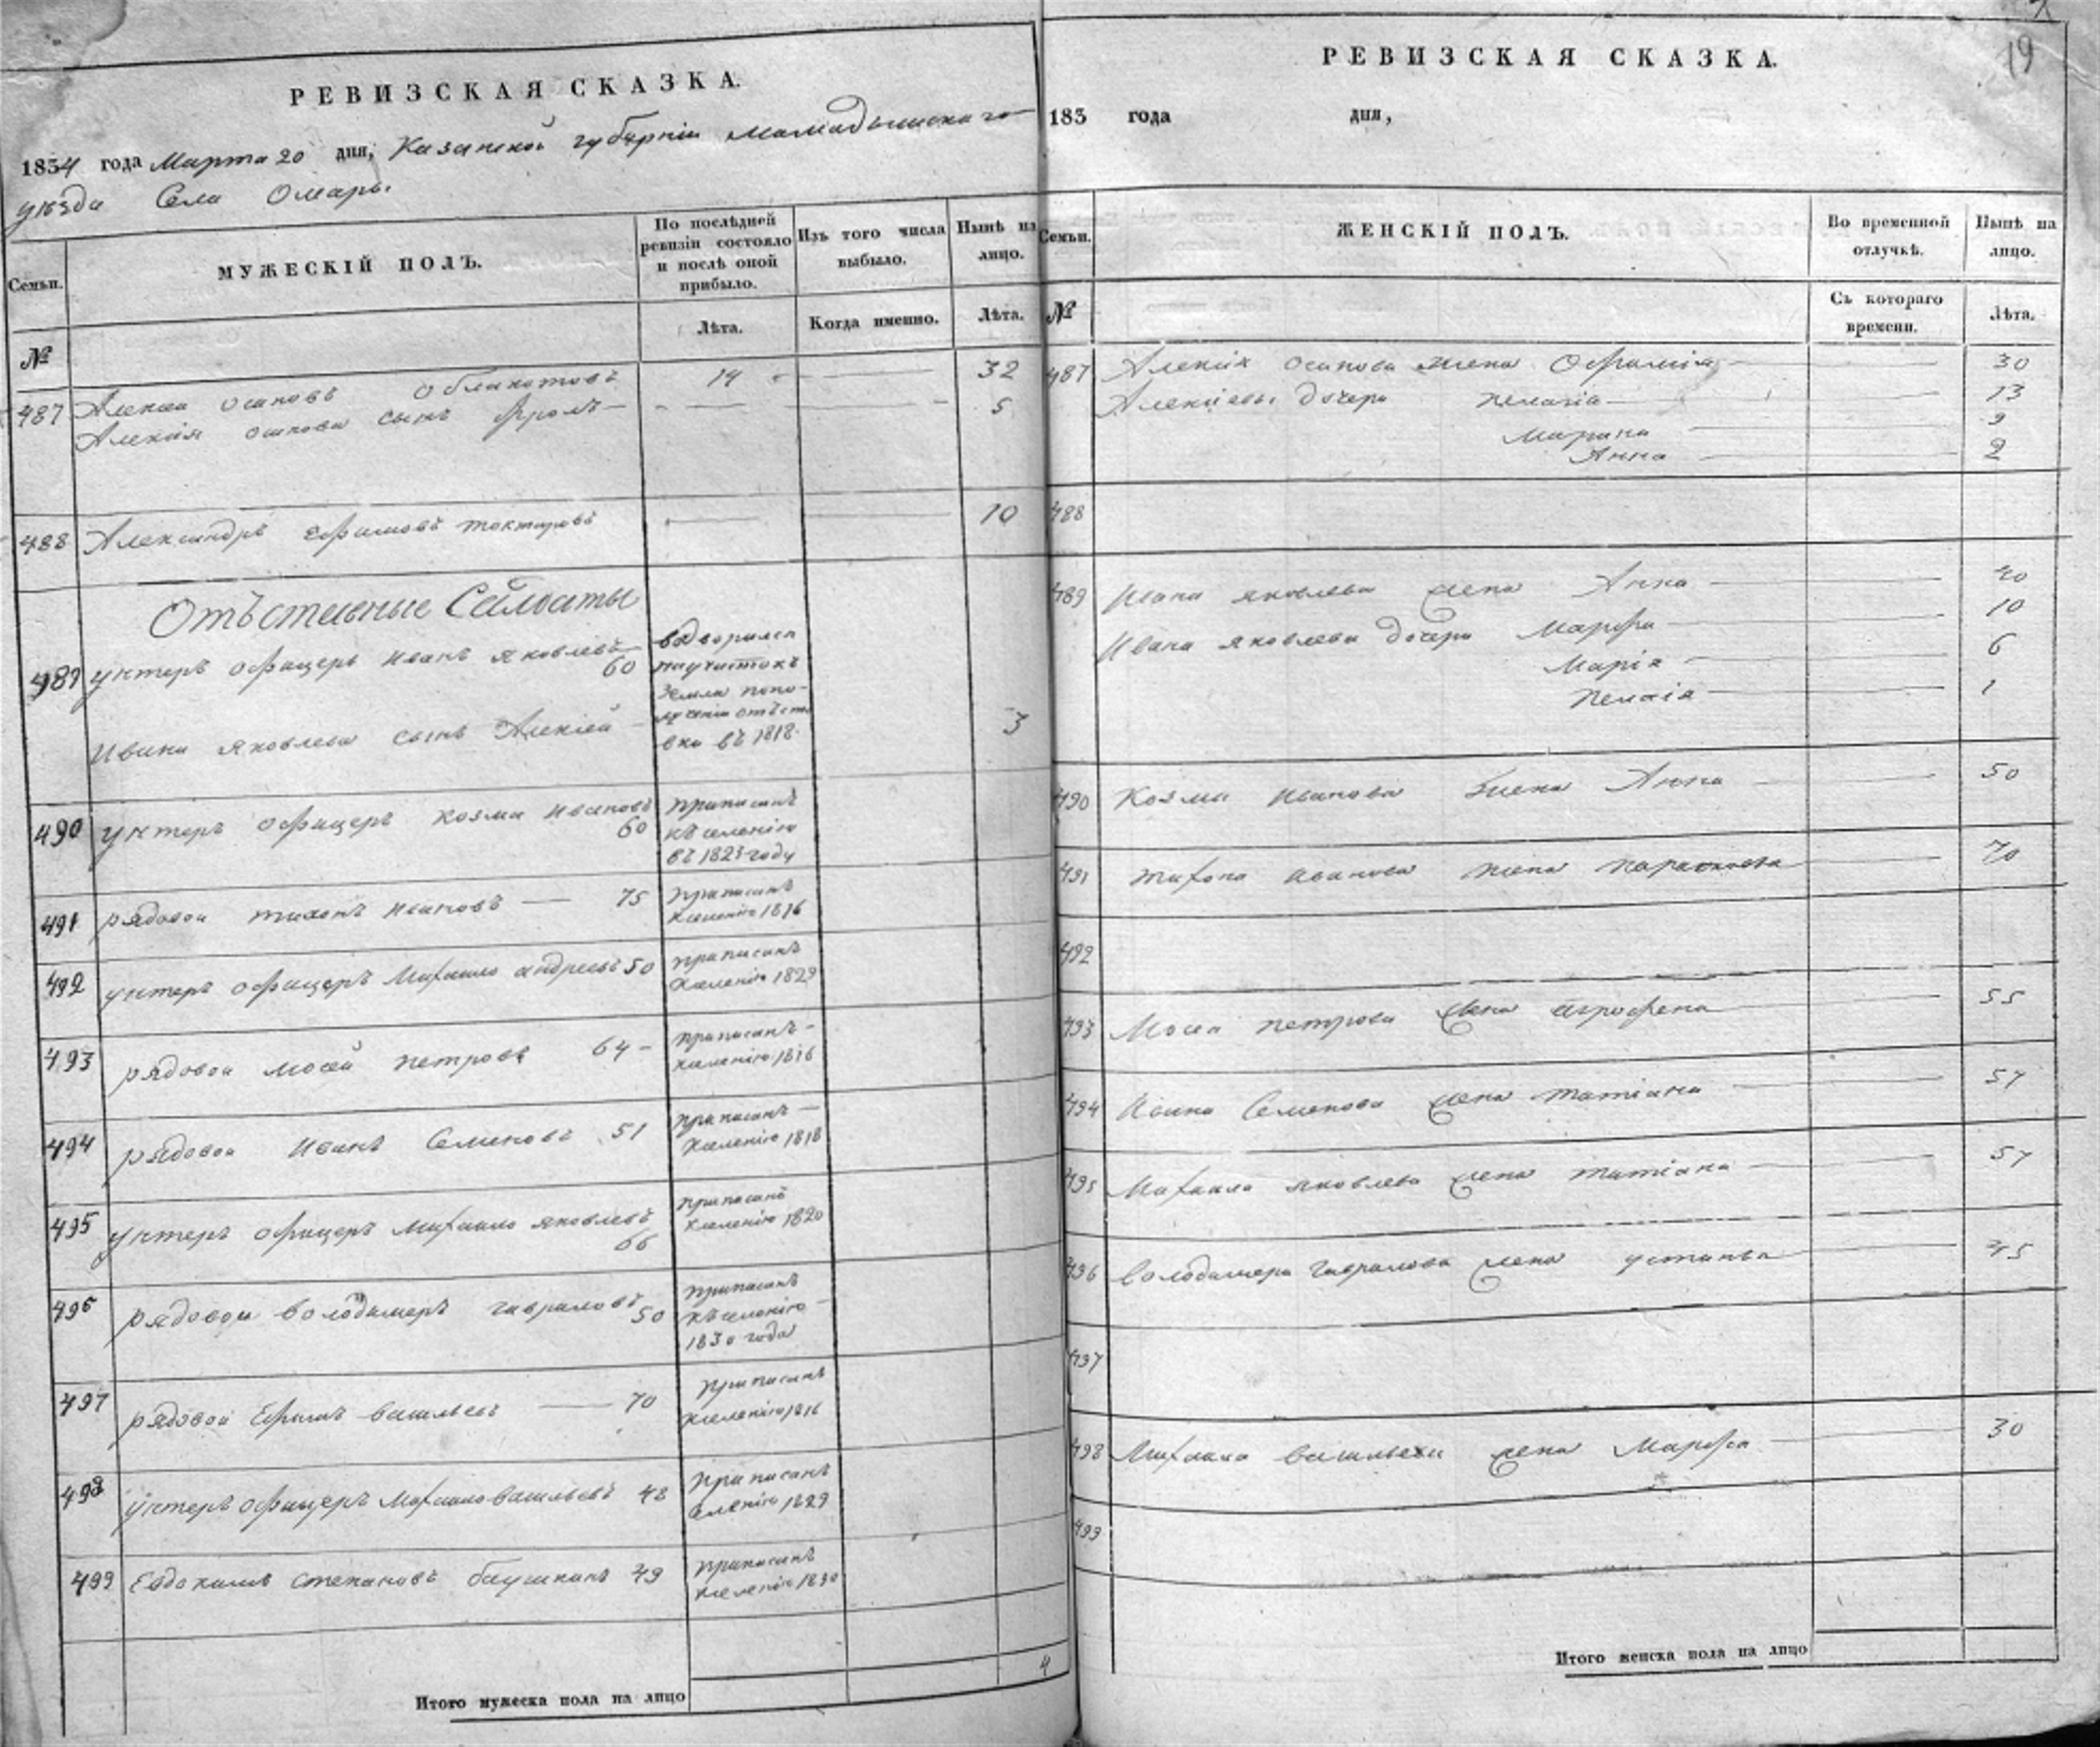 РЕВИЗСКАЯ СКАЗКА.
1834 года Марта 20 дня, Казанской губернiи Мамадышскаго
уѣзда Села Омары.
Семьи.
МУЖЕСКІЙ ПОЛЪ.
По послѣдней ревизіи состояло и послѣ оной прибыло.
Изъ того числа выбыло.
Нынѣ на лицо.
№
Лѣта.
Когда именно.
Лѣта.
487 Алексей осиповъ 14 32
Алексѣя осипова сынъ 5
488 Александръ ефимовъ 10
Отъставные Салдаты
489 унтеръ офицеръ Иванъ яковлевъ 60
водворился
на участокъ
земли попо-
лученiи отъста
вки въ 1818
Ивана яковлева сынъ Алексѣй 3
490 унтеръ офицеръ козма Ивановъ 60
приписанъ
къ селенiю
въ 1823 году
491 рядовой тихонъ Ивановъ 75
приписанъ
кселенiю 1816
492 унтеръ офицеръ Михаило андреевъ 50
приписанъ
кселенiю 1829
493 рядовой мосей петровъ 64
приписанъ
кселенiю 1816
494 рядовой Иванъ Семеновъ 51
приписанъ
кселенiю 1818
495 унтеръ офицеръ Михаило яковлевъ 66
приписанъ
кселенiю 1820
496 рядовой володимеръ гавриловъ 50
приписанъ
къ селенiю
1830 года
497 рядовой Ефимъ васильевъ 70
приписанъ
кселенiю 1816
498 унтеръ офицеръ Михаило васильевъ 48
приписанъ
селенiю 1829
499 Евдокимъ степановъ баушкинъ 49
приписанъ
кселенiю 1830
4
Итого мужеска пола на лицо
19
РЕВИЗСКАЯ СКАЗКА.
183 года дня,
Семьи.
ЖЕНСКІЙ ПОЛЪ.
Во временной отлучкѣ.
Нынѣ на лицо.
№
Съ котораго времени.
Лѣта.
487 Алексѣя осипова жена 30
Алексѣевы дочери пелагiя 13
Марина 9
Анна 2
488
489 Ивана яковлева жена Анна 40
Ивана яковлева дочери Марфа 10
Марiя 6
пелагiя 1
490 Козмы Иванова жена Анна 50
491 тихона иванова жена парасковья 70
492
493 Мосея петрова жена агрофена 55
494 Ивана Семенова жена татiана 57
495 Михаила яковлева жена татiана 57
496 володимера гаврилова жена устинья 45
497
498 Михаила васильева жена Марфа 30
499
Итого женска пола на лицо